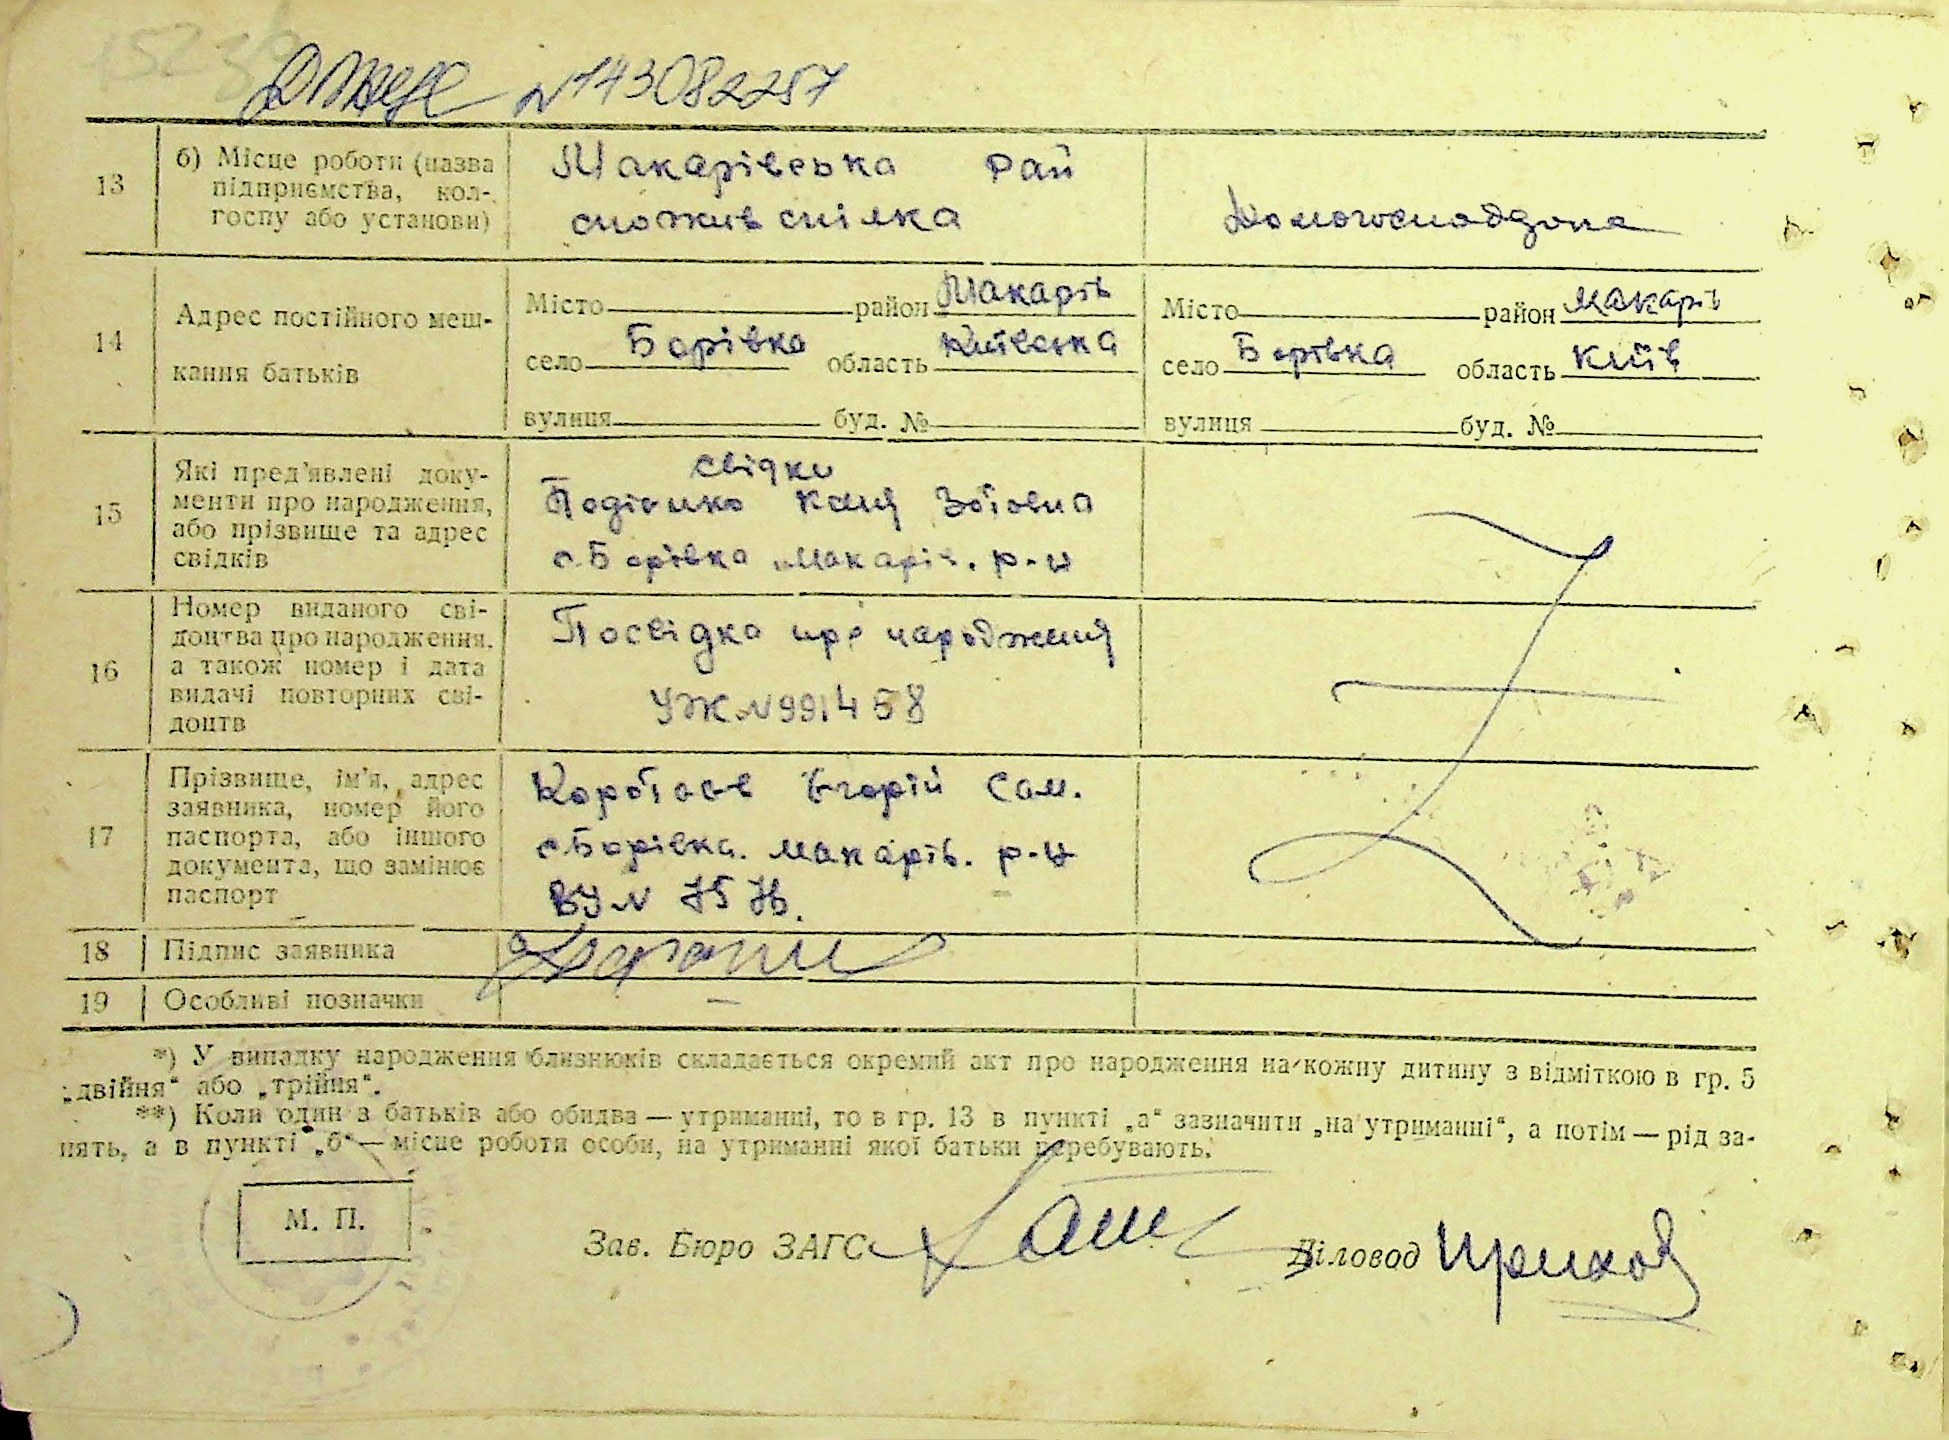 N143082257
13
б) Місце роботи (назва
підприємства, кол-
госпу або установи)
Макарівська рай
споживспілка
Домогосподарка
14
Адрес постійного меш-
кання батьків
Місто район Макарів
село Борівка область Київська
вулиця буд. №
Місто район Макарів
село Борівка область Київ
вулиця буд. №
15
Які пред'явлені доку-
менти про народження,
або прізвище та адрес
свідків
свідки
с. Борівка Макарів. р-н
16
Номер виданого сві-
доцтва про народження,
а також номер і дата
видачі повторних сві-
доцтв
Посвідка про народженя
УЖ N 991458
17
Прізвище, ім'я, адрес
заявника, номер його
паспорта, або іншого
документа, що замінює
паспорт
Егорій Сам.
с. Борівка. Макарів. р-н
18
Підпис заявника
19
Особливі позначки
*) У випадку народження близнюків складається окремий акт про народження на кожну дитину з відміткою в гр. 5
„двійня“ або „трійня“.
**) Коли один з батьків або обидва — утриманці, то в гр. 13 в пункті „а“ зазначити „на утриманні“, а потім — рід за-
нять, а в пункті „б“ — місце роботи особи, на утриманні якої батьки перебувають.
М. П.
Зав. Бюро ЗАГС
Діловод